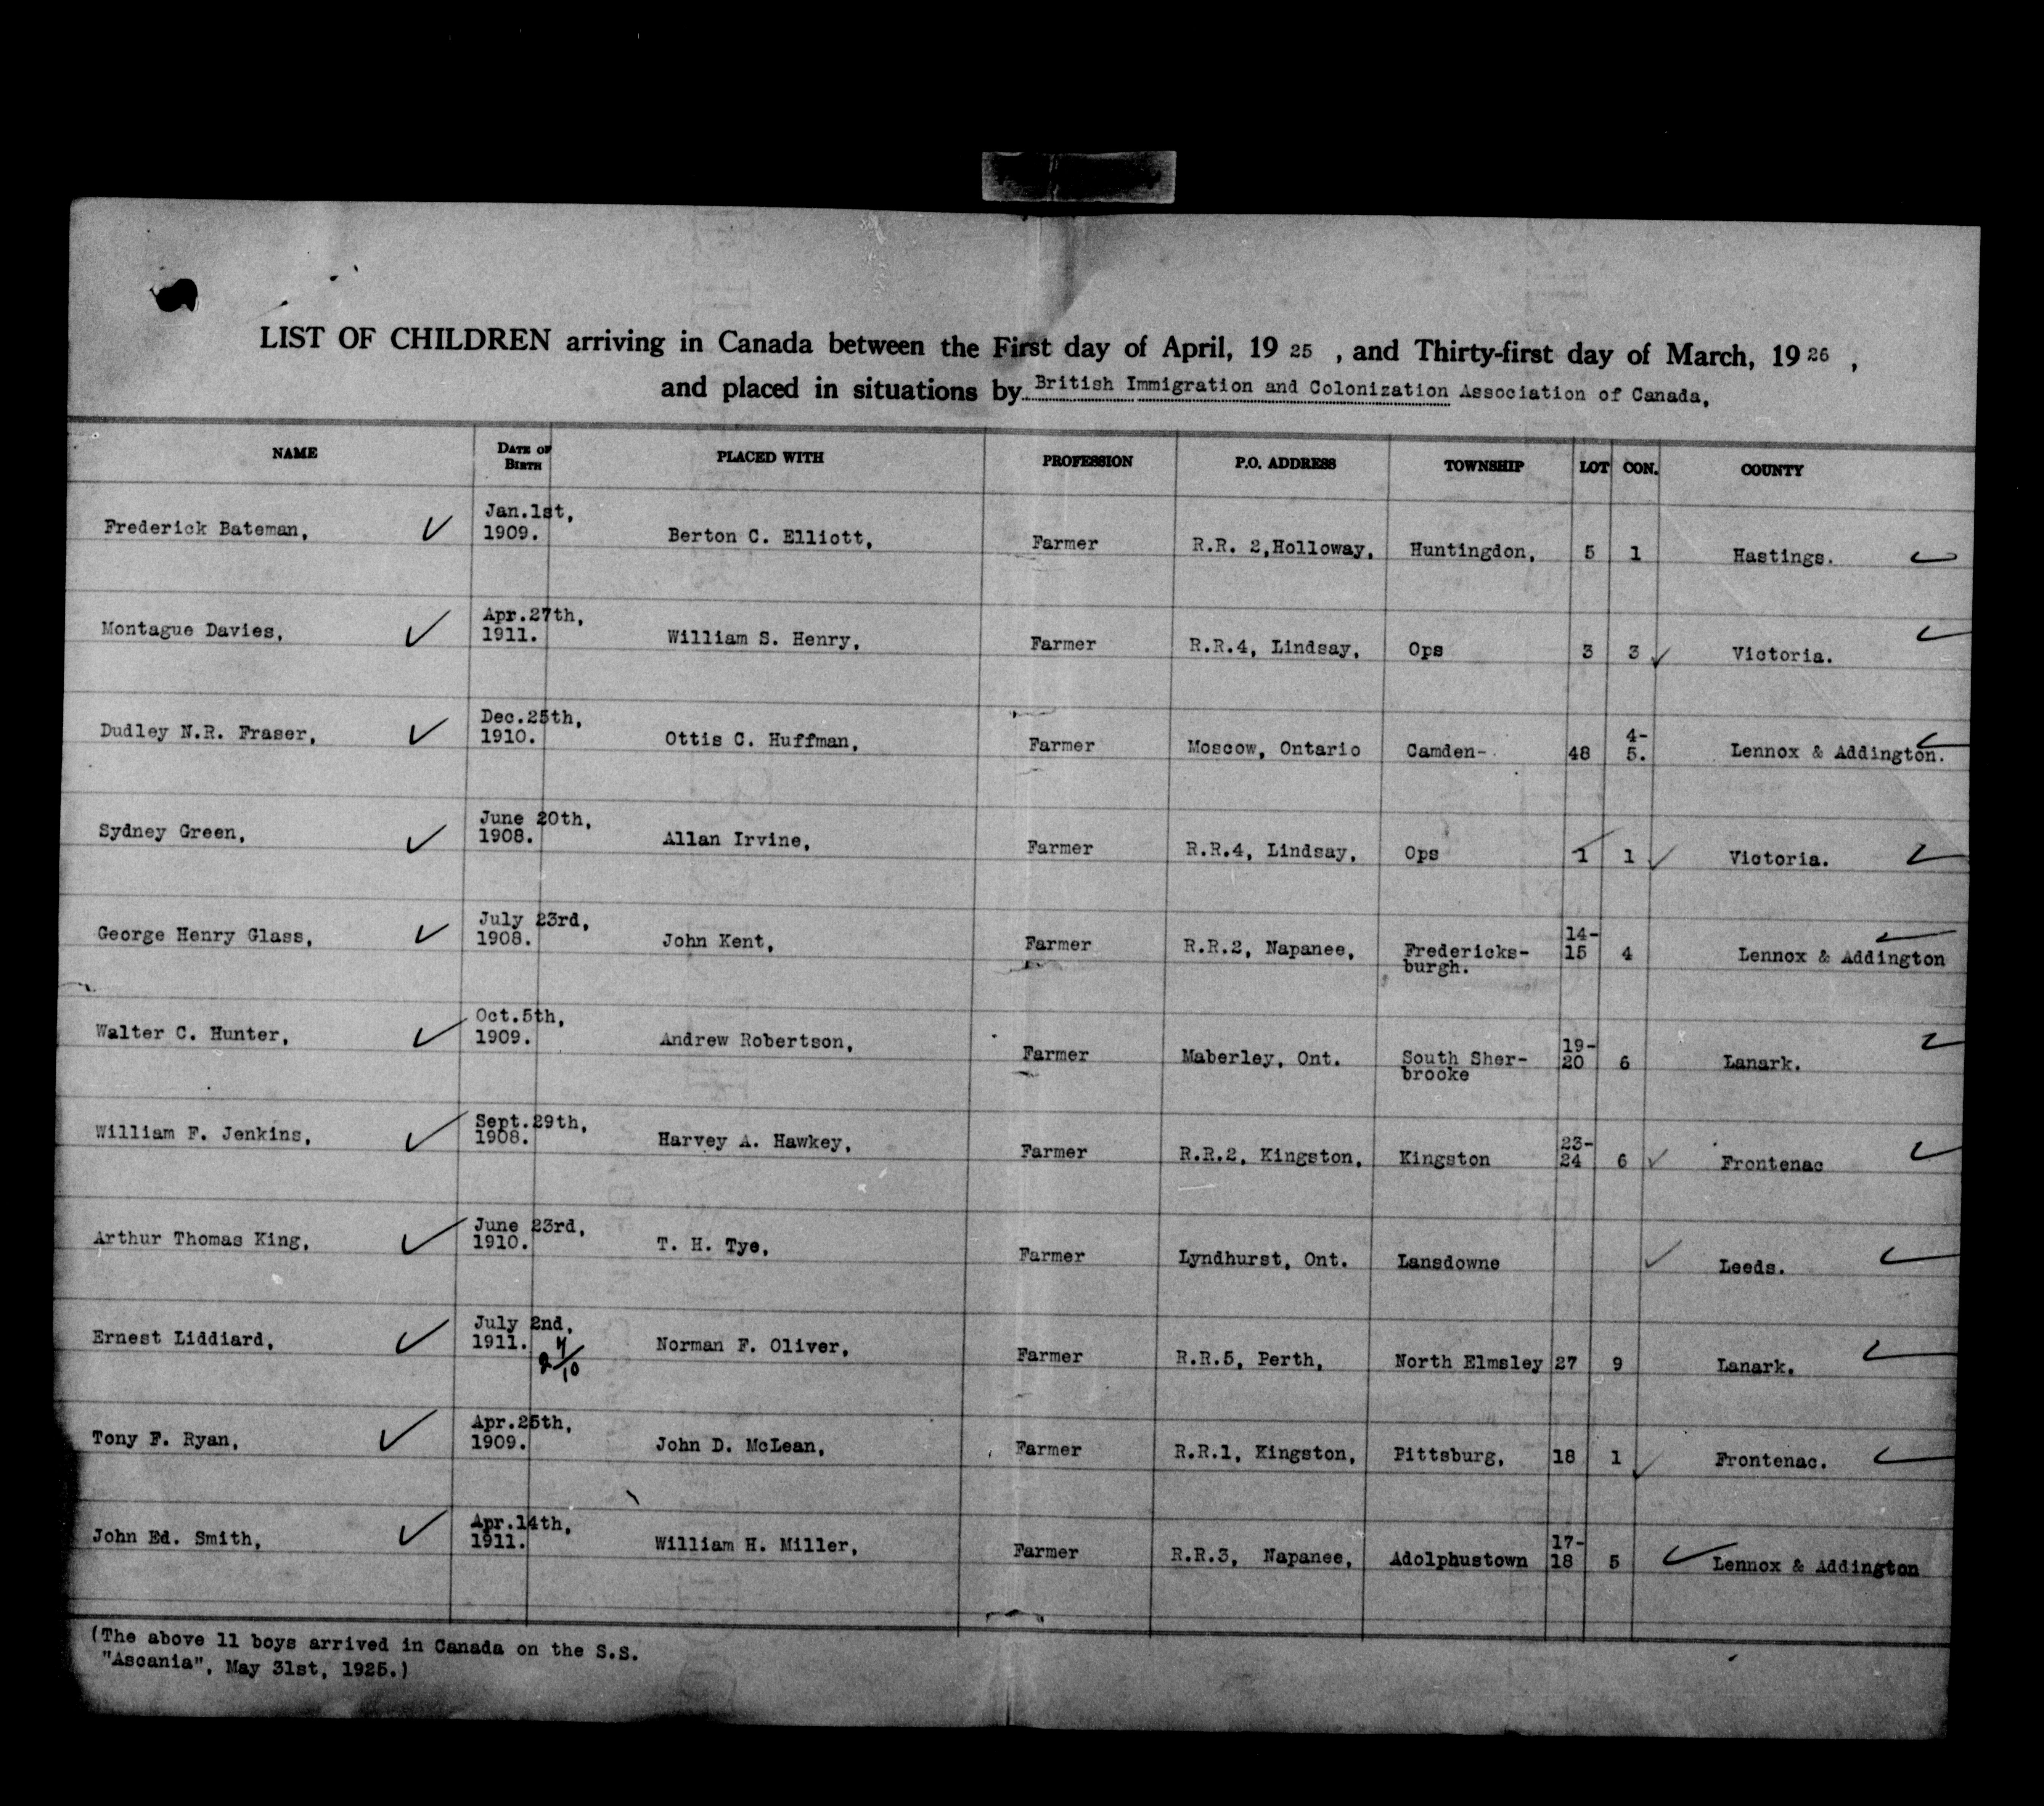 LIST OF CHILDREN arriving in Canada between the First day of April, 19 25 , and Thirty-first day of March, 19 26 ,
and placed in situations by British Immigration and Colonization Association of Canada,
NAME DATE OF BIRTH PLACED WITH PROFESSION P.O. ADDRESS TOWNSHIP LOT CON. COUNTY
Frederick Bateman, Jan.1st, 1909. Berton C. Elliott, Farmer R.R. 2,Holloway, Huntingdon, 5 1 Hastings.
Montague Davies, Apr.27th, 1911. William S. Henry, Farmer R.R.4, Lindsay, Ops 3 3 Victoria.
Dudley N.R. Fraser, Dec.25th, 1910. Ottis C. Huffman, Farmer Moscow, Ontario Camden- 48 4-5. Lennox & Addington.
Sydney Green, June 20th, 1908. Allan Irvine, Farmer R.R.4, Lindsay, Ops 1 1 Victoria.
George Henry Glass, July 23rd, 1908. John Kent, Farmer R.R.2, Napanee, Fredericks-burgh. 14-15 4 Lennox & Addington
Walter C. Hunter, Oct.5th, 1909. Andrew Robertson, Farmer Maberley, Ont. South Sher-brooke 19-20 6 Lanark.
William F. Jenkins, Sept.29th, 1908. Harvey A. Hawkey, Farmer R.R.2, Kingston, Kingston 23-24 6 Frontenac
Arthur Thomas King, June 23rd, 1910. T. H. Tye, Farmer Lyndhurst, Ont. Lansdowne Leeds.
Ernest Liddiard, July 2nd, 1911. Norman F. Oliver, Farmer R.R.5, Perth, North Elmsley 27 9 Lanark.
Tony F. Ryan, Apr.25th, 1909. John D. McLean, Farmer R.R.1, Kingston, Pittsburg, 18 1 Frontenac.
John Ed. Smith, Apr.14th, 1911. William H. Miller, Farmer R.R.3, Napanee, Adolphustown 17-18 5 Lennox & Addington
(The above 11 boys arrived in Canada on the S.S.
"Ascania", May 31st, 1925.)